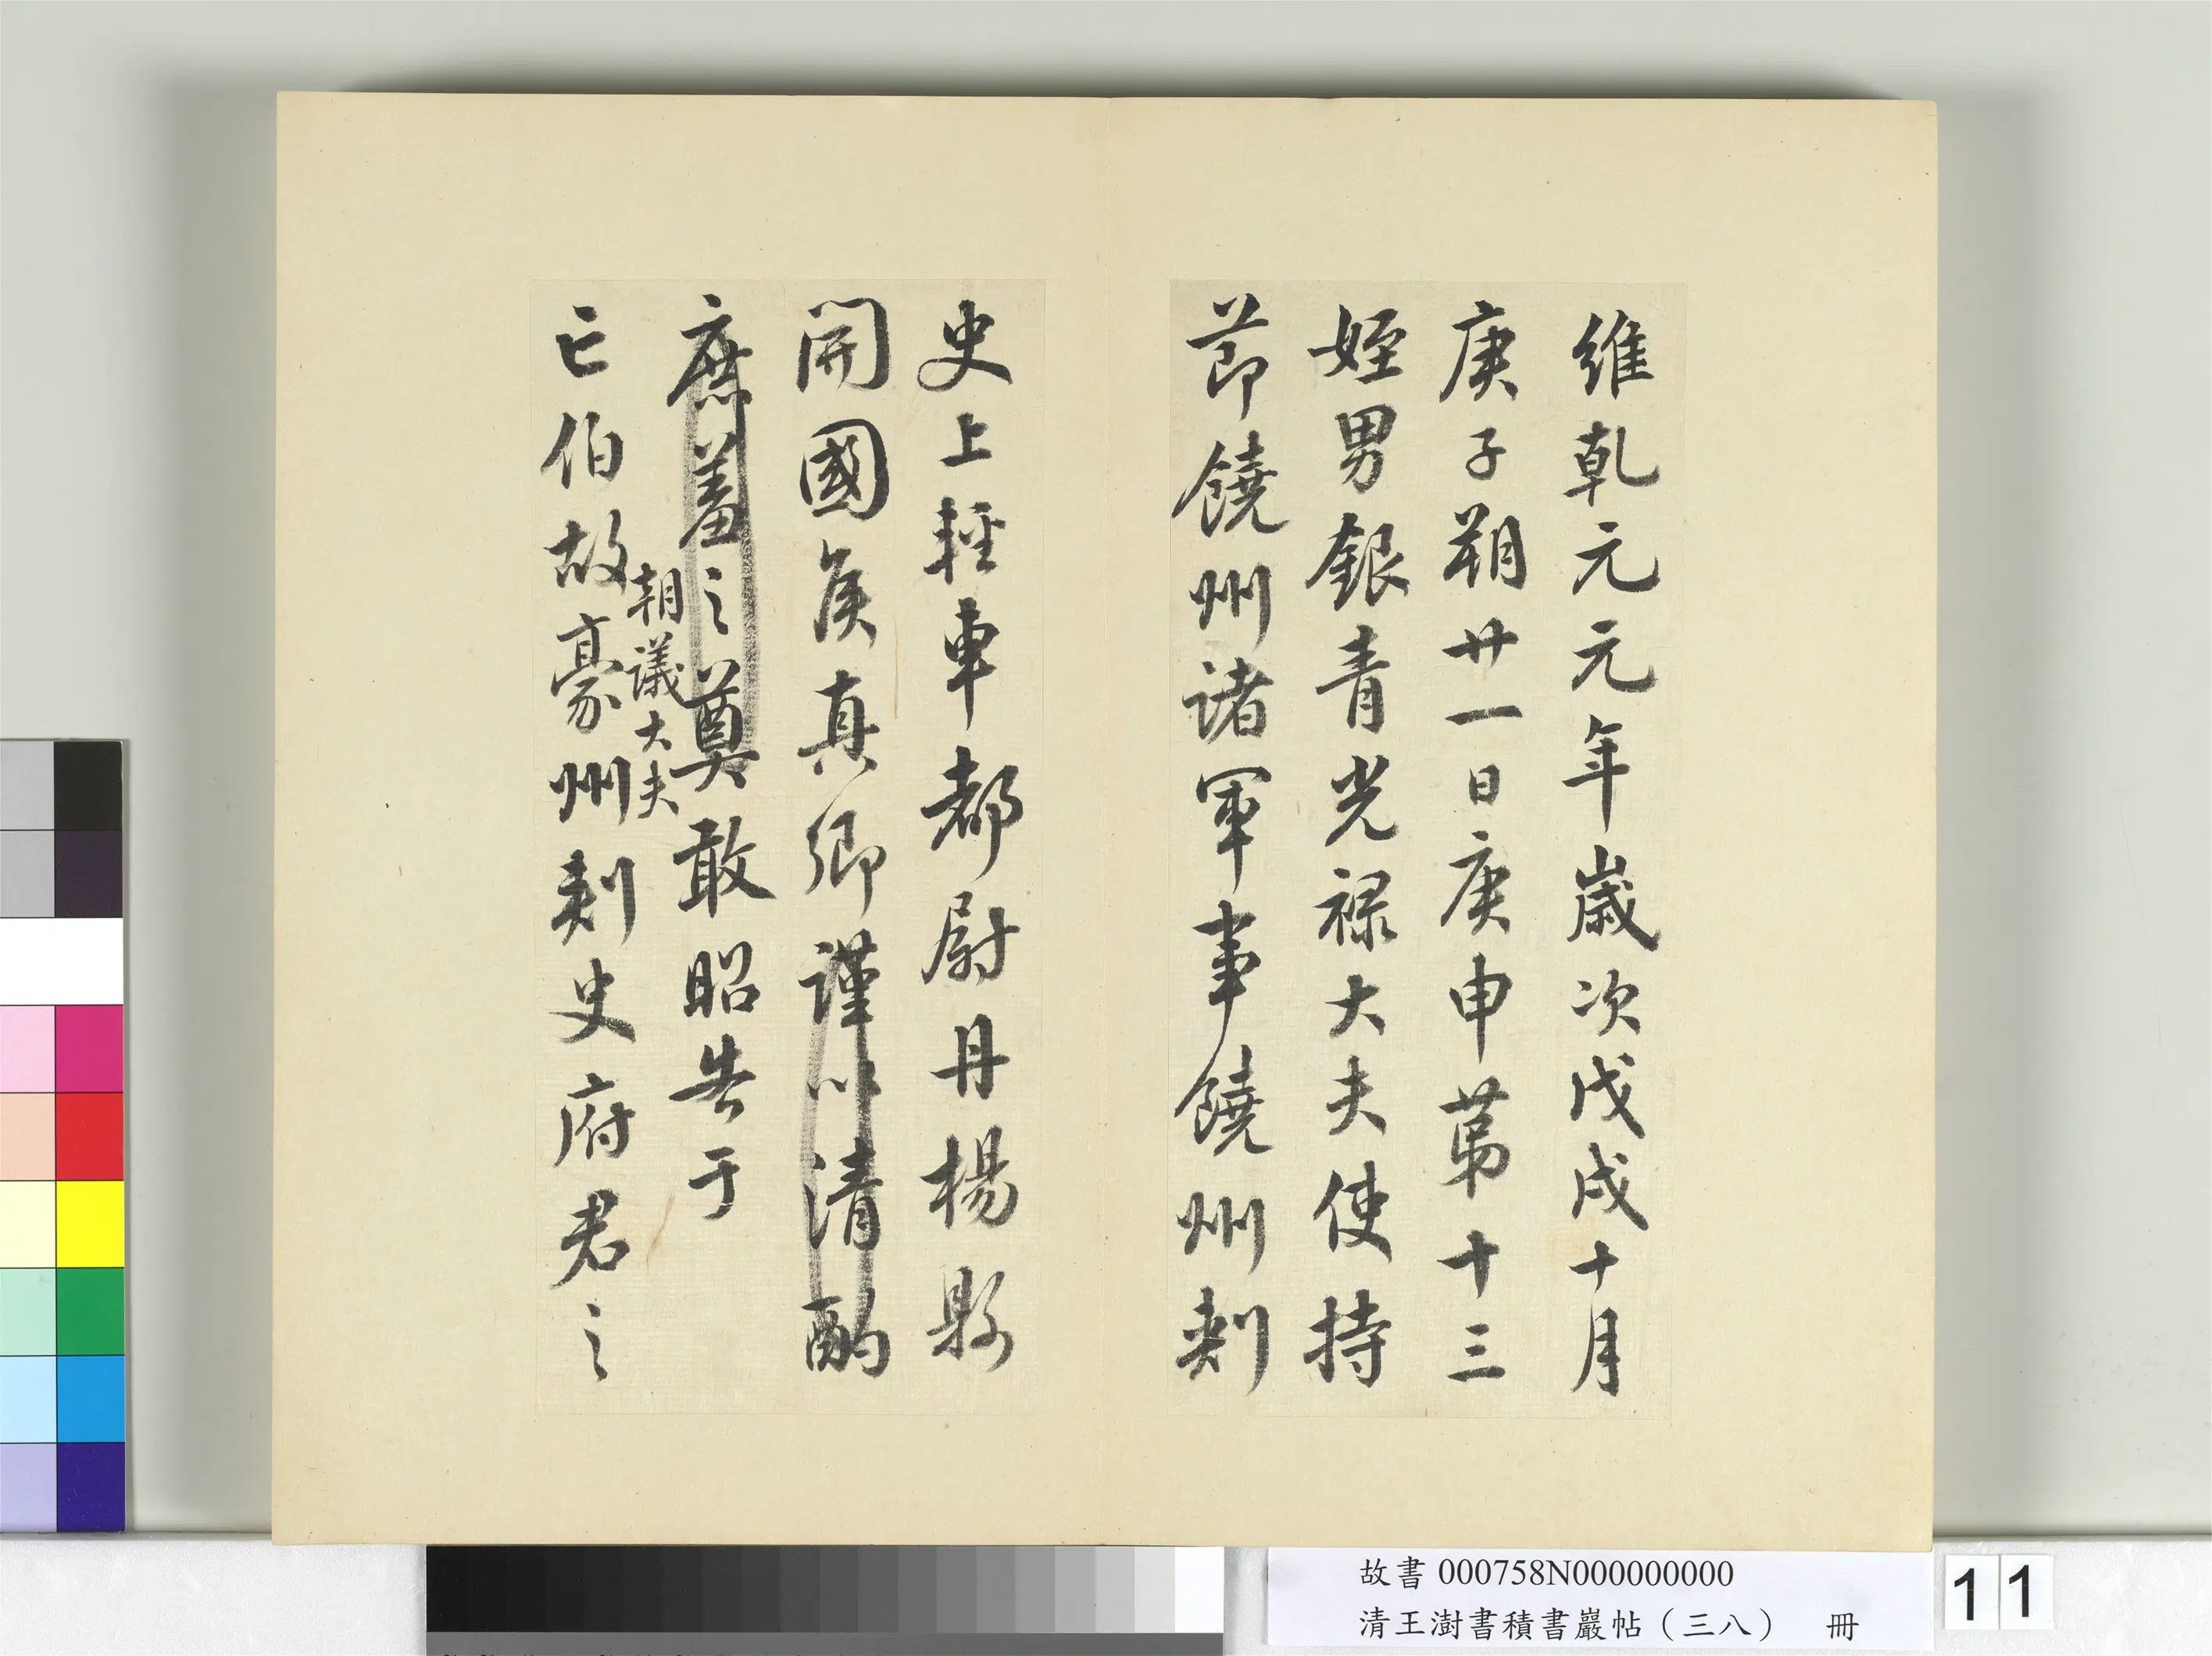 維乾元元年歲次戊戌十月
庚子朔廿一日庚申第十三
姪男銀青光祿大夫使持
節饒州諸軍事饒州刺
史上輕車都尉丹楊縣
開國侯真卿謹以清酌
庶羞之奠敢昭告于
朝議大夫
亡伯故豪州刺史府君之
故書000758N000000000
清王澍書積書巖帖(三八) 冊
11